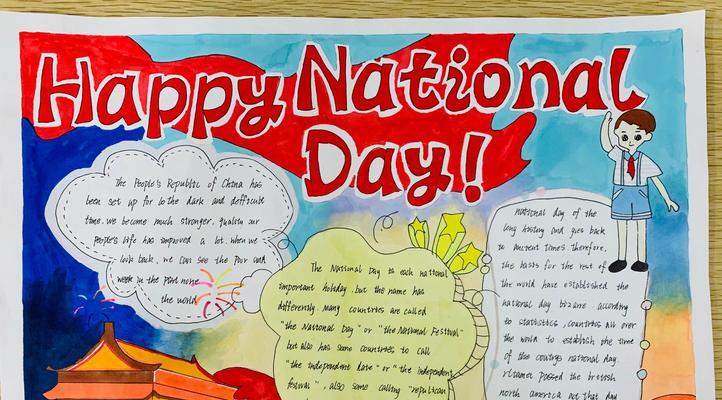 Happy National
Day!
The People's Republic of China has
been set up for to the dark and difficult
time. we become much stronger.
people's life has improved a lot. when we
look back, we can see the poor and
week in the past none
the world
The National Day to each national
important holiday, but the name has
differently. Many countries are called
"the National Day" or "the National Festival"
but also has some countries to call
"the independent date" or "the independent
festival", also some calling "republican
national day of the
long history and goes back
to ancient times. therefore,
the basis for the rest of
the world have established the
national day bizare. according
to statistics, countries all over
the world to establish the time
of the country national day.
passed the british
north america act that day